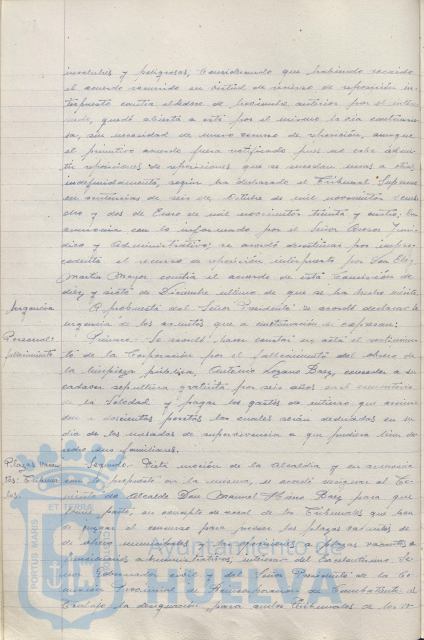 insalubres y peligrosas, Considerando que habiendo recaido
el acuerdo recurrido en virtud de recurso de reposición in-
terpuesto contra el de de Noviembre anterior por el intere-
sado, quedó abierta a este por el mismo la via contencio-
sa, sin necesidad de nuevo recurso de reposición, aunque
el primitivo acuerdo fuera ratificado pues no cabe admi-
tir reposiciones de reposiciones que se sucedan unas a otras
indefinidamente, según ha declarado el Tribunal Supremo
en sentencias de seis de Octubre de mil novecientos
y dos de Enero de mil novecientos treinta y siete; en
armonia con lo informado por el Señor Asesor Juri-
dico y Administrativo; se acordó desestimar por impro-
cedente el recurso de reposición interpuesto por Don
Martin Mayor contra el acuerdo de esta Comisión de
diez y siete de Diciembre ultimo de que se ha hecho mérito.
Urgencia
A propuesta del Señor Presidente se acordó declarar la
urgencia de los asuntos que a continuación se expresan:
Personal:
fallecimiento
Primero.- Se acordó hacer constar en acta el sentimien-
to de la Corporación por el fallecimiento del obrero de
la limpieza pública, Antonio Lozano Baez, conceder a su
cadaver sepultura gratuita por seis años en el cementerio
de la Soledad y pagar los gastos de entierro que ascien-
den a doscientas pesetas las cuales serán deducidas en su
dia de las mesadas de supervivencia a que pudiera tener de-
recho sus familiares.
Plazas vacan-
tes: Tribuna-
les.
Segundo.- Vista moción de la Alcaldia y en armonia
con lo propuesto en la misma, se acordó designar al Te-
niente de Alcalde Don Manuel Baez para que
forme parte, en concepto de vocal de los Tribunales que han
de juzgar el concurso para proveer las plazas vacantes
de obreros municipales y oposiciones a plazas vacantes
administrativos, interesar del Excelentisimo Se-
ñor Gobernador civil y del Señor Presidente de la Co-
misión provincial de Reincorporación de Combatientes al
Trabajo la designación para ambos Tribunales de los
Ayuntamiento de
HUELVA
PORTUS MARIS
ET TERRÆ
CUSTODIA